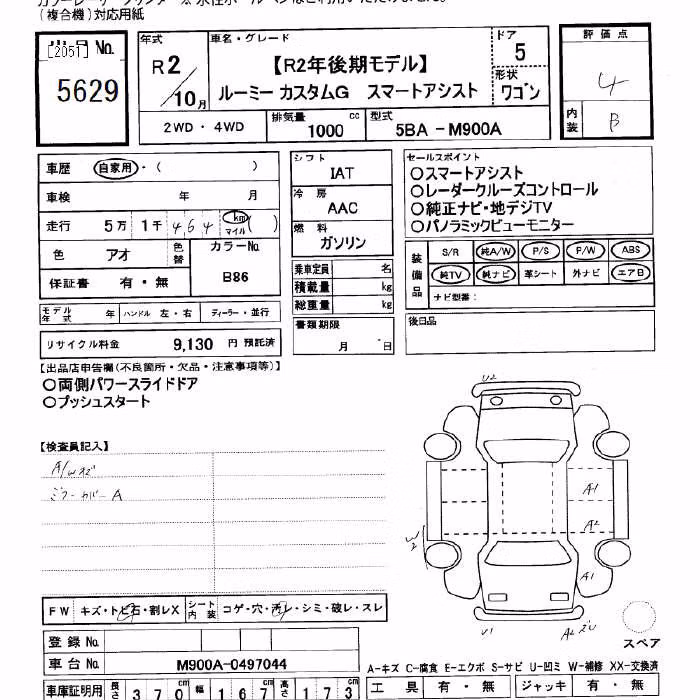 (複合機)対応用紙
出品 No.
[2051]
5629
年式
R2/10月
車名・グレード
【R2年後期モデル】
ルーミー カスタムG スマートアシスト
ドア
5
形状
ワゴン
評価点
4
内装
B
2WD・4WD
排気量 1000 cc
型式 5BA-M900A
車歴 自家用・( )
車検 年 月
走行 5万 1千 464 km マイル ( )
色 アオ 色替
カラーNo. B86
保証書 有・無
モデル年式 年 ハンドル 左・右 ディーラー・並行
リサイクル料金 9,130 円 預託済
シフト
IAT
冷房
AAC
燃料
ガソリン
乗車定員 名
積載量 kg
総重量 kg
書類期限
月 日
セールスポイント
○スマートアシスト
○レーダークルーズコントロール
○純正ナビ・地デジTV
○パノラミックビューモニター
装備品
S/R 純A/W P/S P/W ABS
純TV 純ナビ 革シート 外ナビ エアB
ナビ型番:
後日品
【出品店申告欄(不良箇所・欠品・注意事項等)】
○両側パワースライドドア
○プッシュスタート
【検査員記入】
A/Wスピ
ミラーカバーA
U2
A1
A2
W2
A1
U1
A2
スペア
FW キズ・トビ石・割レX シート内装 コゲ・穴・汚レ・シミ・破レ・スレ
登録No.
車台No. M900A-0497044
車庫証明用 長さ 370cm 幅 167cm 高さ 173cm
A-キズ C-腐食 E-エクボ S-サビ U-凹ミ W-補修 XX-交換済
工具 有・無 ジャッキ 有・無